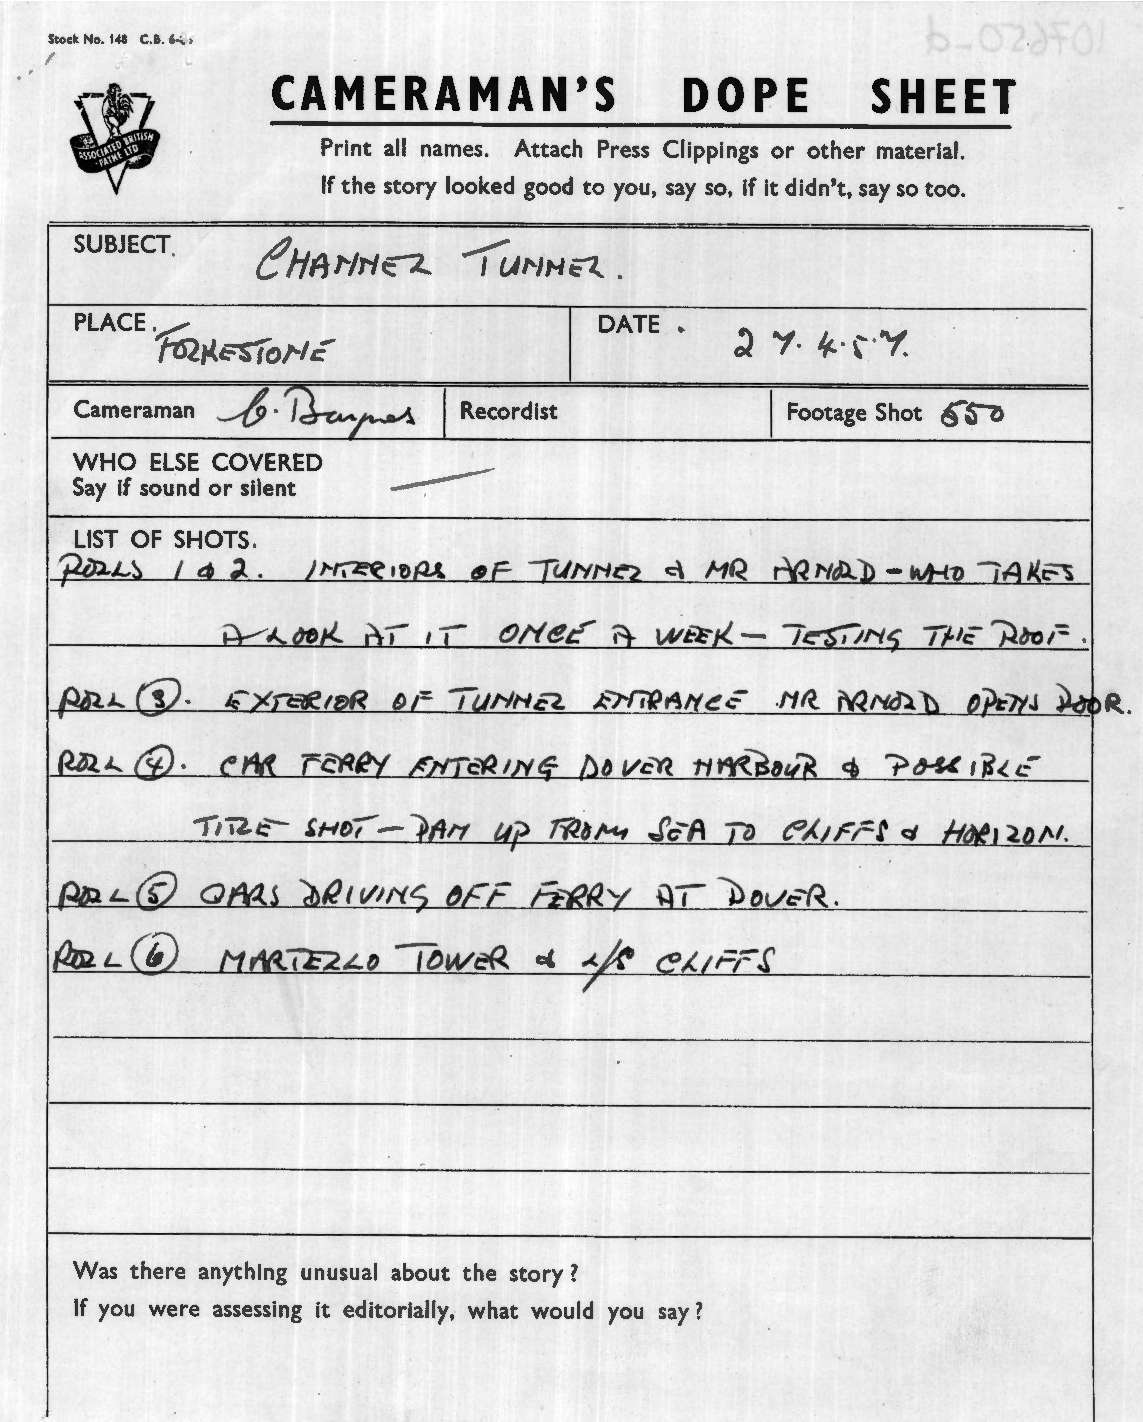 Stock No. 148 C.B.
CAMERAMAN'S DOPE SHEET
ASSOCIATED BRITISH
PATHE LTD
Print all names. Attach Press Clippings or other material.
If the story looked good to you, say so, if it didn't, say so too.
SUBJECT. CHANNEL TUNNEL.
PLACE. FOLKESTONE DATE. 27.4.57.
Cameraman Baynes Recordist Footage Shot 550
WHO ELSE COVERED
Say if sound or silent —
LIST OF SHOTS.
ROLLS 1 & 2. INTERIORS OF TUNNEL & MR ARNOLD - WHO TAKES
A LOOK AT IT ONCE A WEEK - TESTING THE ROOF.
ROLL 3. EXTERIOR OF TUNNEL ENTRANCE MR ARNOLD OPENS DOOR.
ROLL 4. CAR FERRY ENTERING DOVER HARBOUR & POSSIBLE
TITLE SHOT - PAN UP FROM SEA TO CLIFFS & HORIZON.
ROLL 5 CARS DRIVING OFF FERRY AT DOVER.
ROLL 6 MARTELLO TOWER & L/S CLIFFS
Was there anything unusual about the story?
If you were assessing it editorially, what would you say?